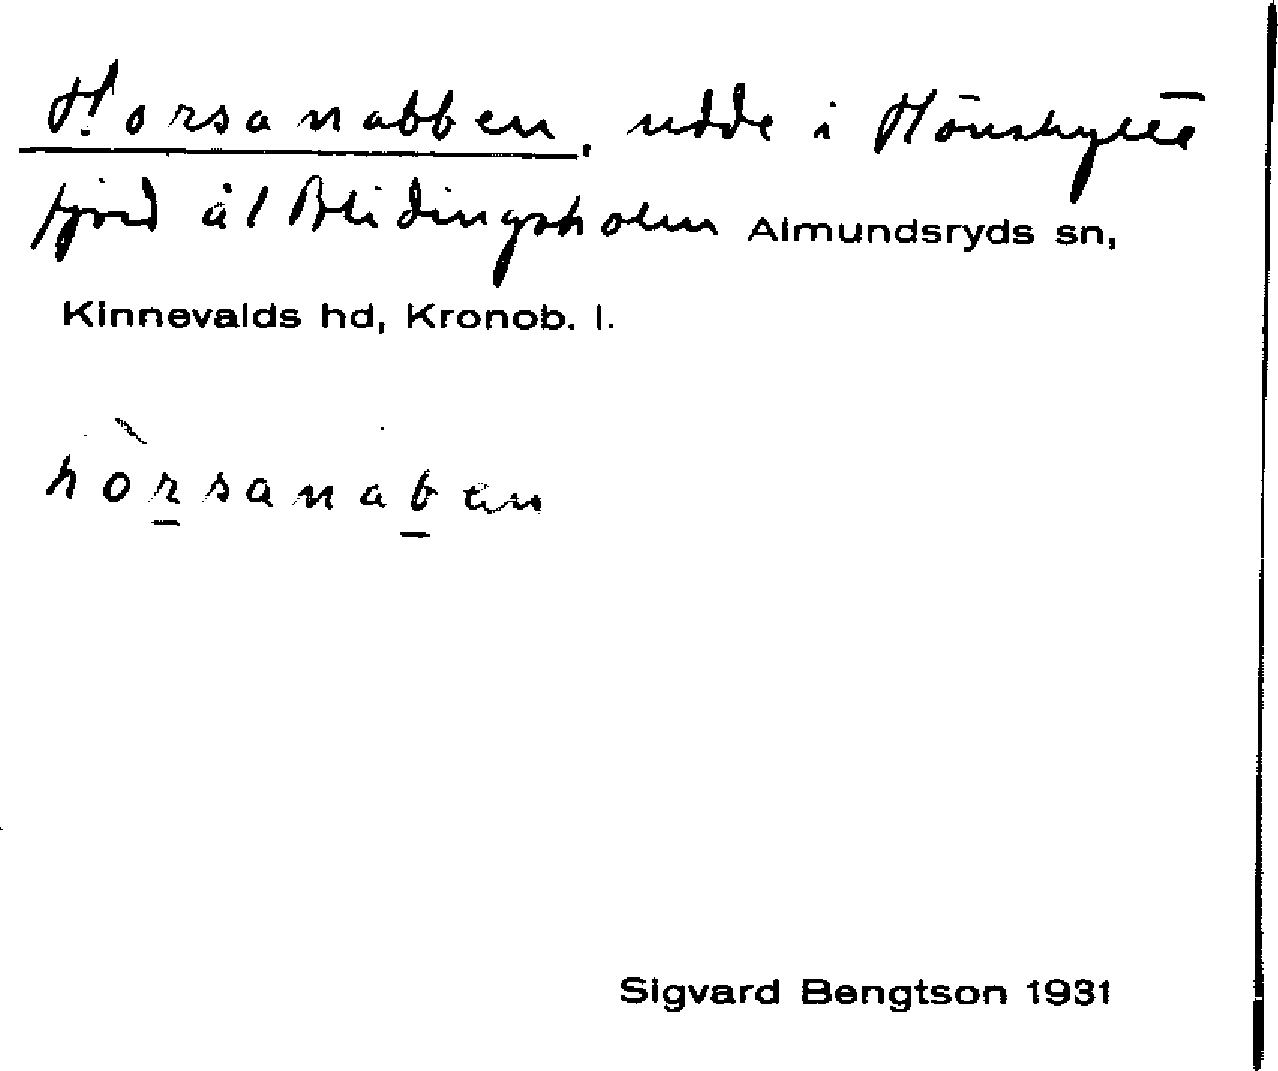 Horsanabben, udde i Hönshytte
fjord å l Blidingsholm Almundsryds sn,
Kinnevalds hd, Kronob. l.
hòrsanaban
Sigvard Bengtson 1931